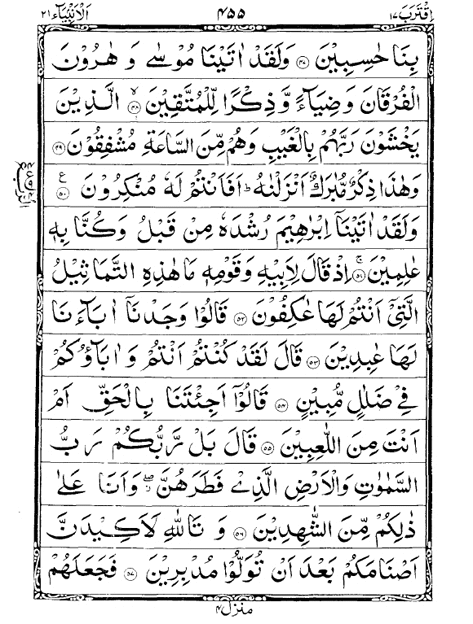 اقترب ١٧ ٤٥٥ الانبياء ٢١
بِنَا حٰسِبِيْنَ ﴿٤٧﴾ وَلَقَدْ اٰتَيْنَا مُوْسٰى وَ هٰرُوْنَ
الْفُرْقَانَ وَضِيَآءً وَّذِكْرًا لِّلْمُتَّقِيْنَ ﴿٤٨﴾ الَّذِيْنَ
يَخْشَوْنَ رَبَّهُمْ بِالْغَيْبِ وَهُمْ مِّنَ السَّاعَةِ مُشْفِقُوْنَ ﴿٤٩﴾
وَهٰذَا ذِكْرٌ مُّبٰرَكٌ اَنْزَلْنٰهُ ؕ اَفَاَنْتُمْ لَهٗ مُنْكِرُوْنَ ﴿٥٠﴾ ع
وَلَقَدْ اٰتَيْنَاۤ اِبْرٰهِيْمَ رُشْدَهٗ مِنْ قَبْلُ وَكُنَّا بِهٖ
عٰلِمِيْنَ ﴿٥١﴾ اِذْ قَالَ لِاَبِيْهِ وَقَوْمِهٖ مَا هٰذِهِ التَّمَاثِيْلُ
الَّتِيْۤ اَنْتُمْ لَهَا عٰكِفُوْنَ ﴿٥٢﴾ قَالُوْا وَجَدْنَاۤ اٰبَآءَنَا
لَهَا عٰبِدِيْنَ ﴿٥٣﴾ قَالَ لَقَدْ كُنْتُمْ اَنْتُمْ وَ اٰبَآؤُكُمْ
فِيْ ضَلٰلٍ مُّبِيْنٍ ﴿٥٤﴾ قَالُوْۤا اَجِئْتَنَا بِالْحَقِّ اَمْ
اَنْتَ مِنَ اللّٰعِبِيْنَ ﴿٥٥﴾ قَالَ بَلْ رَّبُّكُمْ رَبُّ
السَّمٰوٰتِ وَالْاَرْضِ الَّذِيْ فَطَرَهُنَّ ۖ وَاَنَا عَلٰى
ذٰلِكُمْ مِّنَ الشّٰهِدِيْنَ ﴿٥٦﴾ وَ تَاللّٰهِ لَاَكِيْدَنَّ
اَصْنَامَكُمْ بَعْدَ اَنْ تُوَلُّوْا مُدْبِرِيْنَ ﴿٥٧﴾ فَجَعَلَهُمْ
منزل ٤